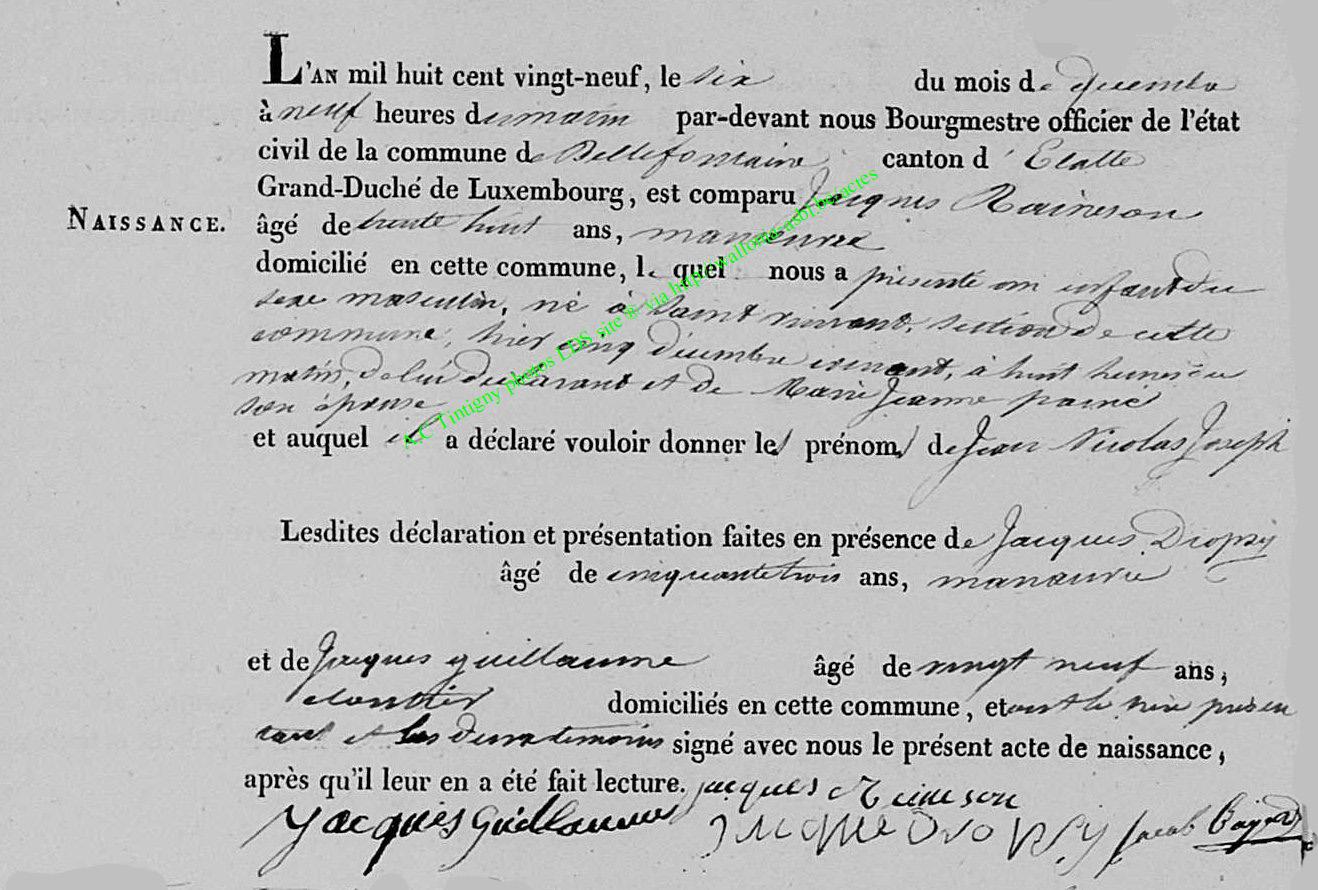 L'AN mil huit cent vingt-neuf, le six du mois de
à neuf heures du matin par-devant nous Bourgmestre officier de l'état
civil de la commune de Bellefontaine canton d'Etalle
Grand-Duché de Luxembourg, est comparu Jacques Raineson
NAISSANCE. âgé de trente huit ans, manœuvre
domicilié en cette commune, le quel nous a présenté un enfant du
sexe masculin, né à Saint vincent, section de cette
commune, hier cinq décembre courant, à huit heures du
matin, de lui déclarant et de Marie Jeanne
son épouse
et auquel il a déclaré vouloir donner les prénoms de Jean Nicolas Joseph
Lesdites déclaration et présentation faites en présence de Jacques Dropsy
âgé de cinquante trois ans, manœuvre
et de Jacques guillaume âgé de vingt neuf ans,
cloutier domiciliés en cette commune, et ont le père présen
tant et les deux temoins signé avec nous le présent acte de naissance,
après qu'il leur en a été fait lecture. jacques
Jacques Guillaume jacque Dropsy Jacob
A.C Tintigny photos LDS site ® via http://wallonia-asbl.be/actes